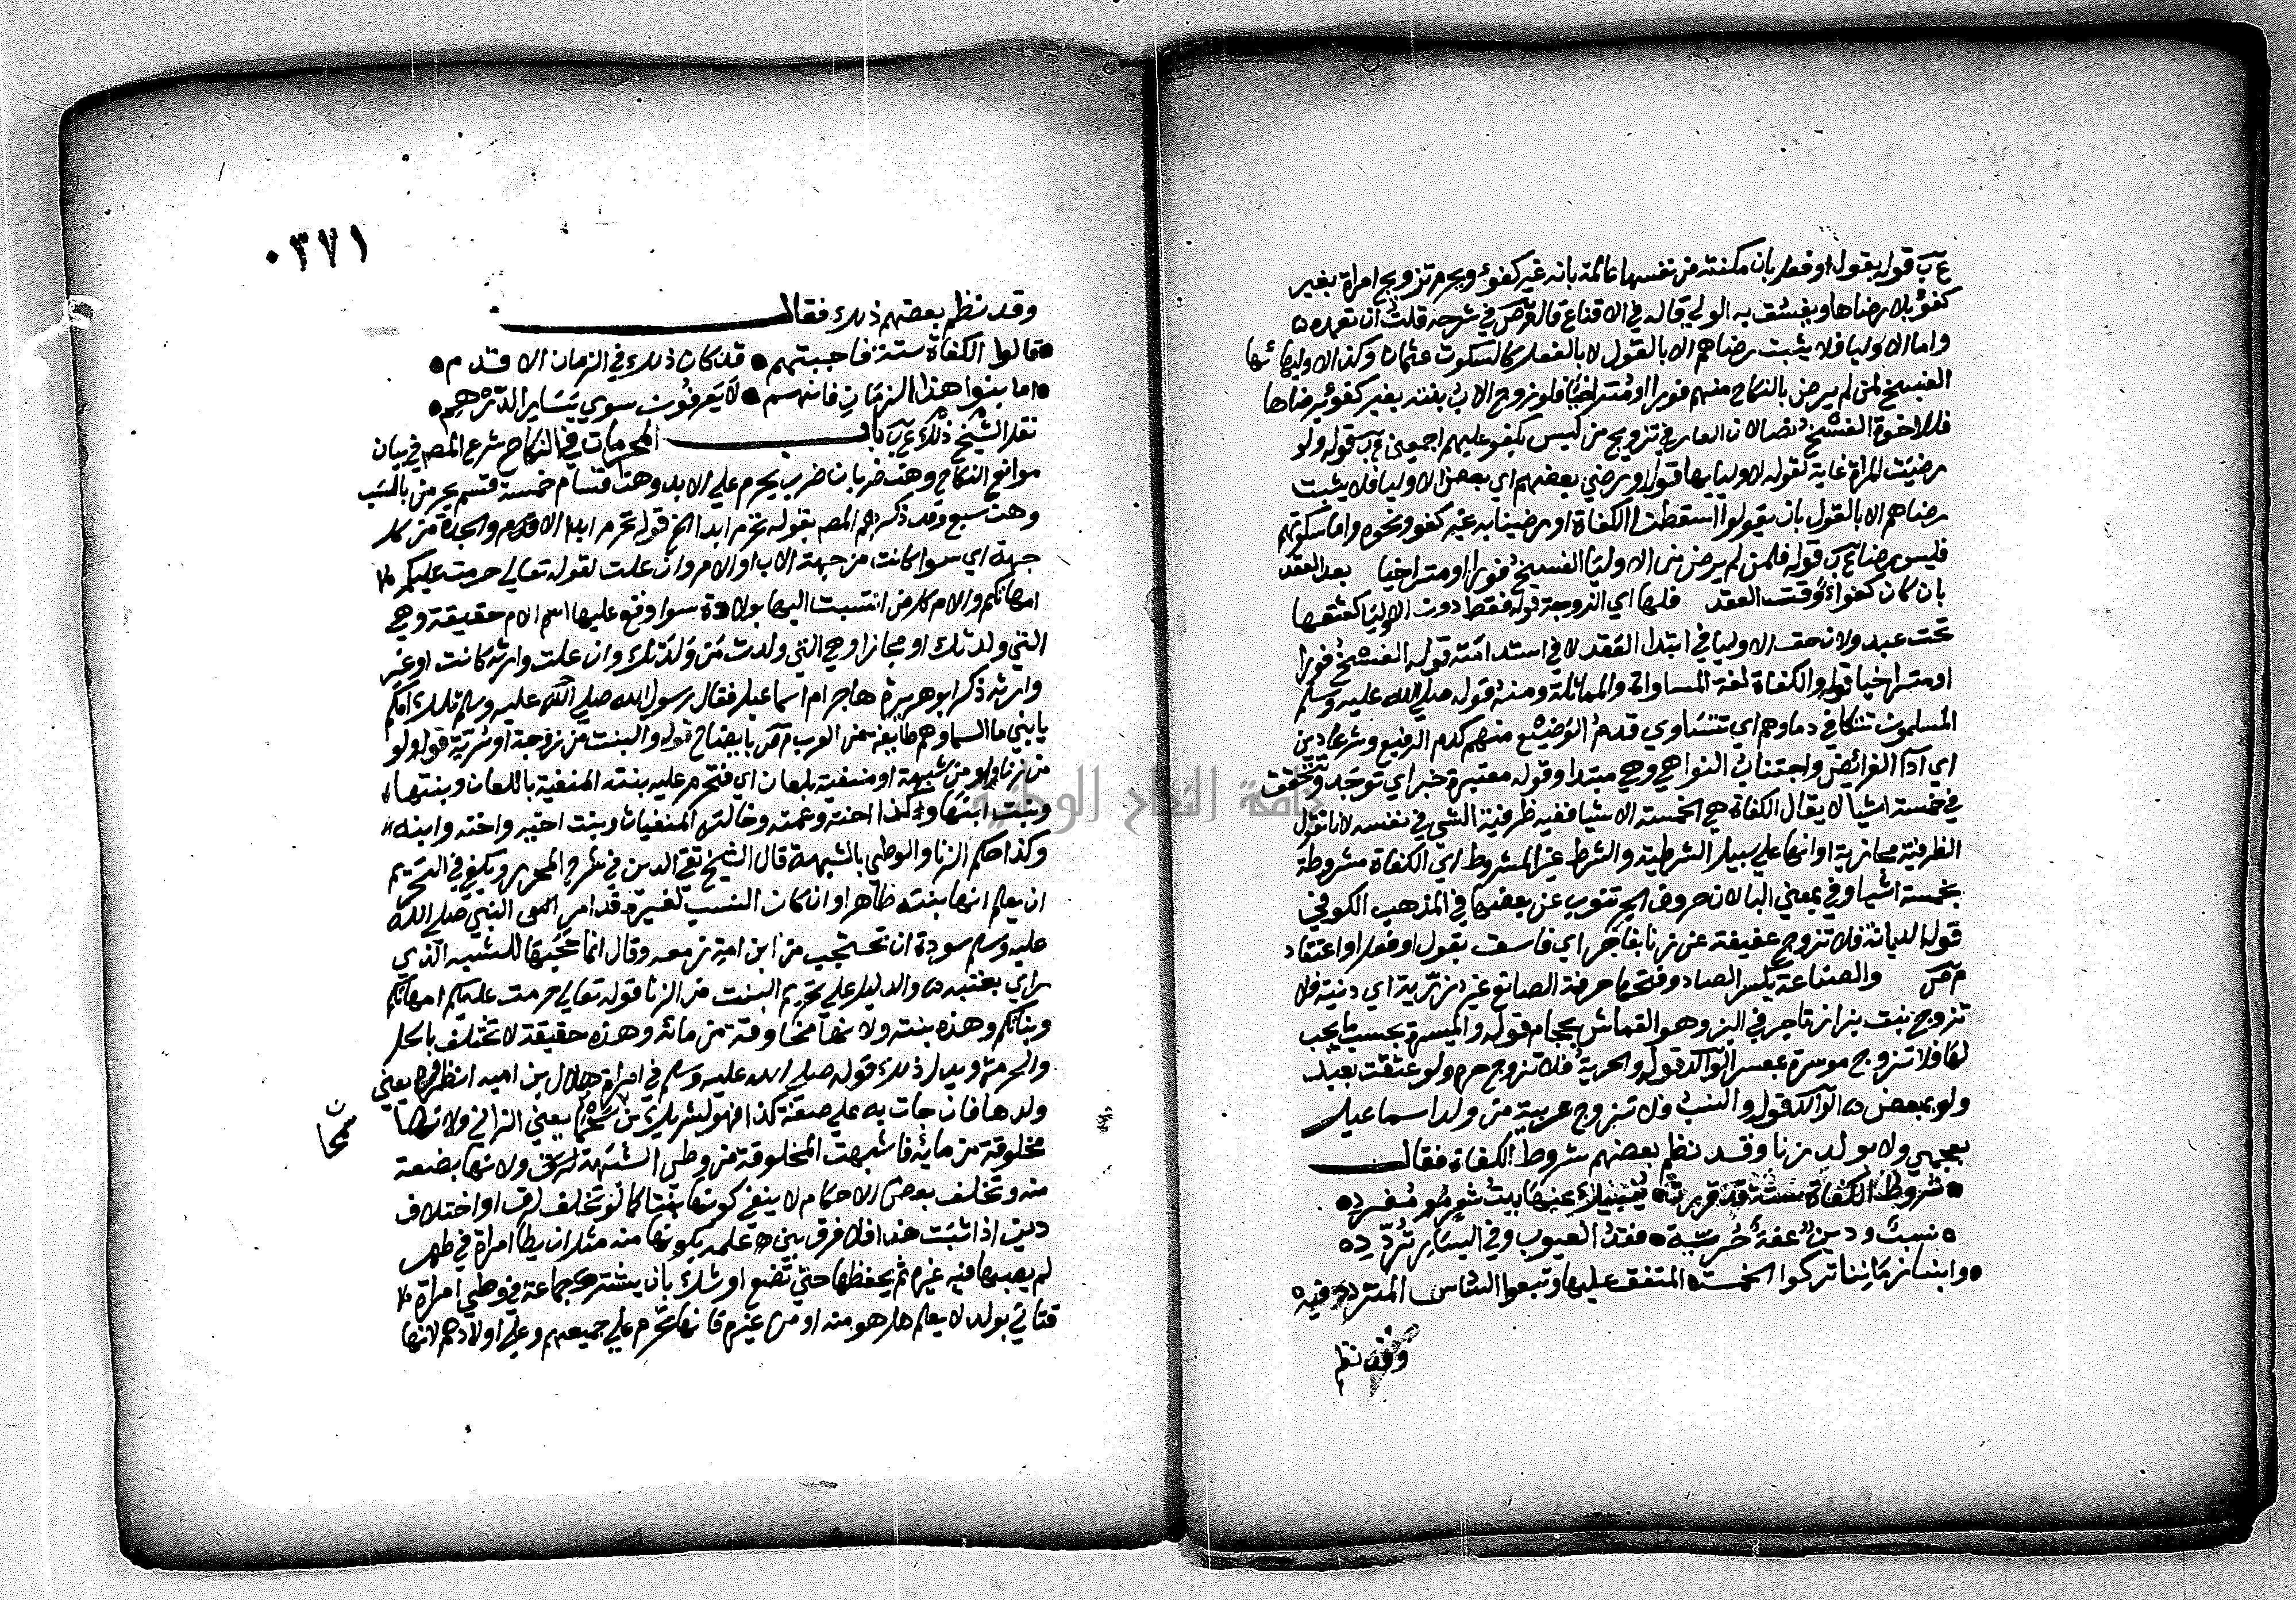 ع ب قوله بقول او فعل بان مكنته من نفسها عالمة بانه غير كفوء ويحرم تزويج امراة بغير
كفؤ بلا رضاها ويفسق به الولي قاله في الاقناع قال في شرحه قلت ان تعمده
واما الاوليا فلا يثبت رضاهم الا بالقول لا بالفعل كالسكوت عثمان وكذا الاوليا
الفسخ لمن لم يرض بالنكاح منهم فورا او متراخيا فلو زوج الاب بنته بغير كفؤ برضاها
فللاخوة الفسخ نصا لان العار في تزويج من ليس بكفو عليهم اجمعين ع ب قوله ولو
رضيت المراة غاية لقوله لاوليايها قوله او رضي بعضهم اي بعض الاوليا فلا يثبت
رضاهم الا بالقول بان يقولوا اسقطنا الكفاة او رضينا به غير كفو ونحوه واما سكوتهم
فليس برضا ع ب قوله فلمن لم يرض من الاوليا الفسخ فورا او متراخيا بعد العقد
بان كان كفوا وقت العقد فلها اي الزوجة قوله فقط دون الاوليا كعتقها
تحت عبد ولان حق الاوليا في ابتدا العقد لا في استدامته قوله الفسخ فورا
او متراخيا قوله والكفاة لغة المساواة والمماثلة ومنه قوله صلى الله عليه وسلم
المسلمون تتكافى دماوهم اي تتساوي فدم الوضيع منهم كدم الرفيع وشرعا دين
اي ادا الفرائض واجتناب النواهي وهي مبتدا وقوله معتبرة خبر اي توجد وتتحقق
في خمسة اشيا لا يقال الكفاة هي الخمسة الاشيا ففيه ظرفية الشي في نفسه لانا نقول
الظرفية مجازية او انها على سبيل الشرطية والشرط غير المشروط اي الكفاة مشروطة
بخمسة اشيا وفي بمعنى البا لان حروف الجر تنوب عن بعضها في المذهب الكوفي
قوله الديانة فلا تزوج عفيفة عن زنا بفاجر اي فاسق بقول او فعل او اعتقاد
م ص والصناعة بكسر الصاد وفتحها حرفة الصانع غير زرية اي دنية فلا
تزوج بنت بزاز تاجر في البز وهو القماش بحجام قوله والميسرة بحسب ما يجب
لها فلا تزوج موسرة بمعسر قوله والحرية فلا تزوج حرة ولو عتقت بعبد
ولو ببعض قوله والنسب فلا تزوج عربية من ولد اسماعيل
بعجمي ولا بولد زنا وقد نظم بعضهم شروط الكفاة فقال
شروط الكفاة ستة قد قررت ينبيك عنها بيت شعر مفرد
نسب ودين عفة حرية فقد العيوب وفي اليسار تردد
وابنا زماننا تركوا الخمسة المتفق عليها وتبعوا السادس المتردد فيه
وقد نظم
٠٣٧١
وقد نظم بعضهم ذلك فقال
قالوا الكفاة ستة فاجبتهم قد كان ذلك في الزمان الاقدم
اما بنوا هذا الزمان فانهم لا يعرفون سوي يسار الدرهم
نقل الشيخ ذلك ع ب باب المحرمات في النكاح شرع المص في بيان
موانع النكاح وهن ضربان ضرب يحرم على الابد وهن اقسام خمسة قسم يحرمن بالنسب
وهن سبع وقد ذكرهم المص بقوله تحرم ابدا الخ قوله تحرم ابدا الام والجدة من كل
جهة اي سوا كانت من جهة الاب او الام وان علت لقوله تعالى حرمت عليكم
امهاتكم والام كل من انتسبت اليها بولادة سوا وقع عليها اسم الام حقيقة وهي
التي ولدتك او مجازا وهي التي ولدت من ولدتك وان علت وارثة كانت او غير
وارثة ذكر ابو هريرة هاجر ام اسماعيل فقال رسول الله صلى الله عليه وسلم تلك امكم
يا بني ما السما وهم طايفة من العرب م ص بايضاح قوله والبنت من زوجة او سرية قوله ولو
من زنا او من شبهة او منفية بلعان اي فتحرم عليه بنته المنفية باللعان وبنتها
وبنت ابنها وكذا اخته وعمته وخالته المنفيات وبنت اخيه واخته وابنه
وكذا حكم الزنا والوطي بالشبهة قال الشيخ تقي الدين في شرح المحرر ويكفي في التحريم
ان يعلم انها بنته ظاهرا وان كان النسب لغيره قد امر النبي صلى الله
عليه وسلم سودة ان تحتجب من ابن امة زمعه وقال انما حجبها للشبه الذي
راي بعتبه والدليل على تحريم البنت من الزنا قوله تعالى حرمت عليكم امهاتكم
وبناتكم وهذه بنته ولانها مخلوقة من مائه وهذه حقيقة لا تختلف بالحل
والحرمة ويدل ذلك قوله صلى الله عليه وسلم في امراة هلال بن امية انظروه يعني
ولدها فان جات به على صفة كذا فهو لشريك بن سحما يعني الزاني ولانها
مخلوقة من مائه فاشبهت المخلوقة من وطي الشبهة ولانها بضعة
منه وتخلف بعض الاحكام لا ينفي كونها بنتا كما لو تخلف لرق او اختلاف
دين اذا ثبت هذا فلا فرق بين علمه بكونها منه مثل ان يطا امراة في طهر
لم يصبها فيه غيره ثم يحفظها حتى تضع او شك بان يشترك جماعة في وطي امراة
فتاتي بولد لا يعلم هل هو منه او من غيره فانها تحرم على جميعهم وعلى اولادهم لانها